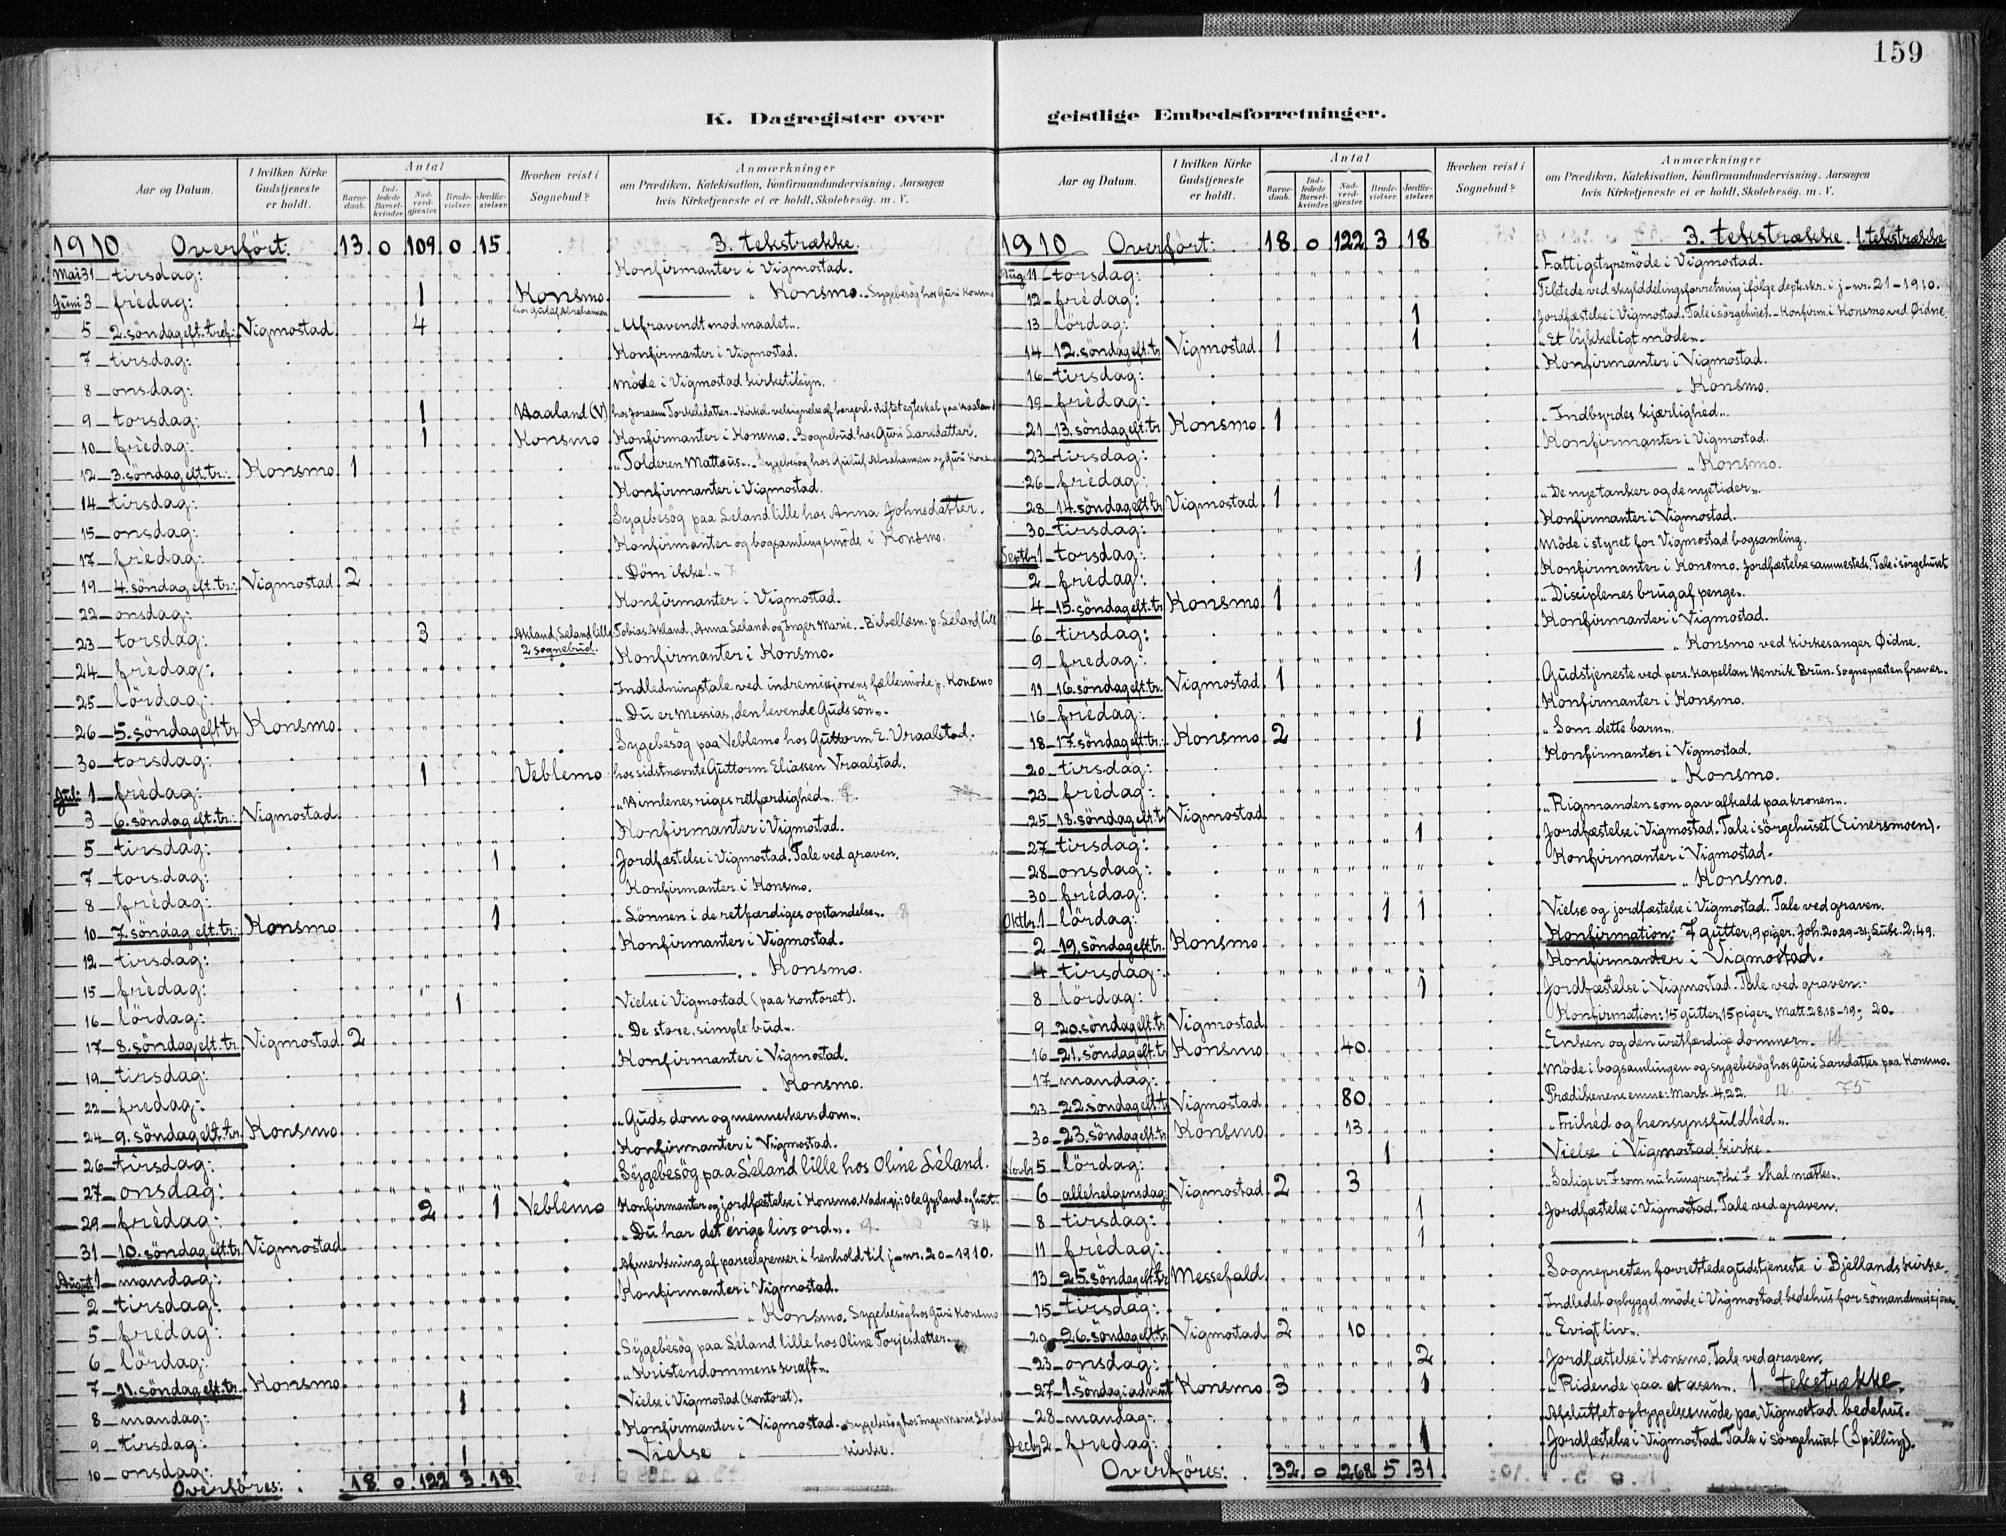 159
K. Dagregister over
geistlige Embedsforretninger.
Aar og Datum. | I hvilken Kirke Gudstjeneste er holdt. | Antal | Barne-daab. | Ind-ledede Barsel-kvinder. | Nad-verd-gjæster. | Brude-vielser. | Jordfæ-stelser. | Hvorhen reist i Sognebud? | Anmærkninger om Prædiken, Katekisation, Konfirmandundervisning, Aarsagen hvis Kirketjeneste ei er holdt, Skolebesøg m. V.
1910 Overført. 13 0 109 0 15 3. tekstrække.
Mai 31 tirsdag: Konfirmanter i Vigmostad.
Juni 3 fredag: 1 Konsmo. hos Guluf Abrahamsen — „ Konsmo. Sygebesøg hos Guri Konsmo
5 2. söndag eft. tref.: Vigmostad. 4 „Ufravendt mod maalet".
7 tirsdag: Konfirmanter i Vigmostad.
8 onsdag: Møde i Vigmostad kirketilsyn.
9 torsdag: 1 Haaland (V)
10 fredag: 1 Konsmo Konfirmanter i Konsmo. Sognebud hos Guri Larsdatter.
12 3. söndag eft. tr.: Konsmo 1 „Tolderen Mattæus". Sygebesøg hos Guluf Abrahamsen og Guri Kons
14 tirsdag: Konfirmanter i Vigmostad.
15 onsdag: Sygebesög paa Leland lille hos Anna Johnsdatter.
17 fredag: Konfirmanter og bogsamlingsmöde i Konsmo.
19 4. söndag eft. tr.: Vigmostad 2 „Döm ikke!"
22 onsdag: Konfirmanter i Vigmostad.
23 torsdag: 3 Akland, Leland lille 2 sognebud. Tobias Akland, Anna Leland og Inger Marie. Bibellæsn. p. Leland lille
24 fredag: Konfirmanter i Konsmo.
25 lördag: Indledningstale ved indremissjonens fællesmöde p. Konsmo
26 5. söndag eft. tr. Konsmo „Du er Messias, den levende Guds sön".
30 torsdag: Sygebesög paa Veblemo hos Guttorm E. Vraalstad.
Juli 1 fredag: 1 Veblemo hos sidstnævnte Guttorm Eliassen Vraalstad.
3 6. söndag eft. tr.: Vigmostad „Himlenes riges retfærdighed".
5 tirsdag: Konfirmanter i Vigmostad.
7 torsdag: 1 Jordfæstelse i Vigmostad. Tale ved graven.
8 fredag: Konfirmanter i Konsmo.
10 7. söndag eft. tr.: Konsmo 1 „Lönnen i de retfærdiges opstandelse". 8
12 tirsdag: Konfirmanter i Vigmostad.
15 fredag: — „ Konsmo.
16 lördag: 1 Vielse i Vigmostad (paa kontoret).
17 8. söndag eft. tr. Vigmostad 2 „De store, simple bud".
19 tirsdag: Konfirmanter i Vigmostad.
22 fredag: — „ Konsmo.
24 9. söndag eft. tr. Konsmo „Guds dom og menneskers dom".
26 tirsdag: Konfirmanter i Vigmostad.
27 onsdag: Sygebesög paa Leland lille hos Oline Leland.
29 fredag: 2 1 Veblemo Konfirmanter og jordfæstelse i Konsmo. Nadv.gj: Ole Gysland og hust.
31 10. söndag eft. tr. Vigmostad „Du har det evige livs ord". 9. 74
August 1 mandag: Afmerkning af parcelgrenser i henhold til j-nr. 20-1910.
2 tirsdag: Konfirmanter i Vigmostad.
5 fredag: — „ Konsmo. Sygebesög hos Guri Konsmo
6 lördag: Sygebesög paa Leland lille hos Oline Torjesdatter.
7 11. söndag eft. tr. Konsmo „Kristendommens kraft".
8 mandag: 1 Vielse i Vigmostad (kontoret).
9 tirsdag: Konfirmanter i Vigmostad. Sygebesög hos Inger Marie
10 onsdag: 1 Vielse „ — kirke.
Overføres: 18 0 122 3 18
Aar og Datum. | I hvilken Kirke Gudstjeneste er holdt. | Antal | Barne-daab. | Ind-ledede Barsel-kvinder. | Nad-verd-gjæster. | Brude-vielser. | Jordfæ-stelser. | Hvorhen reist i Sognebud? | Anmærkninger om Prædiken, Katekisation, Konfirmandundervisning, Aarsagen hvis Kirketjeneste ei er holdt, Skolebesøg m. V.
1910 Overført: 18 0 122 3 18 3. tekstrække. 1. tekstrække
Aug 11 torsdag: Fattigstyremöde i Vigmostad.
12 fredag: Tilstede ved skylddelingsforretning ifölge dept.skr. i j-nr. 21-1910.
13 lördag: 1 Jordfæstelse i Vigmostad. Tale i sörgehuset. Konfirm. i Konsmo ved Øidne.
14 12. söndag eft. tr. Vigmostad 1 1 „Et lykkeligt möde".
16 tirsdag: Konfirmanter i Vigmostad.
19 fredag: — „ Konsmo.
21 13. söndag eft. tr. Konsmo 1 „Indbyrdes kjærlighed".
23 tirsdag: Konfirmanter i Vigmostad.
26 fredag: — „ Konsmo.
28 14. söndag eft. tr. Vigmostad 1 „De nye tanker og de nye tider".
30 tirsdag: Konfirmanter i Vigmostad.
Septbr 1 torsdag: Möde i styret for Vigmostad bogsamling.
2 fredag: 1 Konfirmanter i Konsmo. Jordfæstelse sammesteds; Tale i sörgehuset
4 15. söndag eft. tr. Konsmo 1 „Disciplenes brug af penge".
6 tirsdag: Konfirmanter i Vigmostad.
9 fredag: — „ Konsmo ved kirkesanger Øidne.
11 16. söndag eft. tr. Vigmostad 1 Gudstjeneste ved pers. kapellan Henrik Brun. Sognepresten fravær.
16 fredag: Konfirmanter i Konsmo.
18 17. söndag eft. tr.: Konsmo 2 1 „Som dette barn".
20 tirsdag: Konfirmanter i Vigmostad.
23 fredag: — „ Konsmo.
25 18. söndag eft. tr Vigmostad „Rigmanden som gav afkald paa kronen".
27 tirsdag: 1 Jordfæstelse i Vigmostad. Tale i sörgehuset (Einersmoen).
28 onsdag: Konfirmanter i Vigmostad.
30 fredag: — „ Konsmo.
Oktbr. 1 lördag: 1 1 Vielse og jordfæstelse i Vigmostad. Tale ved graven.
2 19. söndag eft. tr. Konsmo Konfirmation: 7 gutter, 9 piger. Joh. 20 29-31; Luk. 2, 49.
4 tirsdag: Konfirmanter i Vigmostad.
8 lördag: 1 Jordfæstelse i Vigmostad. Tale ved graven.
9 20. söndag eft. tr Vigmostad Konfirmation: 15 gutter, 15 piger. Matt. 28, 18-19-20.
16 21. söndag eft. tr Konsmo 40 „Enken og den uretfærdige dommer".
17 mandag: Möde i bogsamlingen og sygebesög hos Guri Larsdatter paa Konsmo.
23 22. söndag eft. tr Vigmostad 80 Prædikenens emne: Mark. 4, 22. 75
30 23. söndag eft. tr Konsmo 13 „Frihed og hensynsfuldhed".
Novbr 5 lördag: 1 Vielse i Vigmostad kirke.
6 allehelgensdag: Vigmostad 2 3 „Salige er I som nu hungrer, thi I skal mættes".
8 tirsdag: 1 Jordfæstelse i Vigmostad. Tale ved graven.
11 fredag: 1 — „ — „ —
13 25. söndag eft. tr Messefald Sognepresten forrettede gudstjeneste i Bjellands kirke.
15 tirsdag: Indledet opbyggel. möde i Vigmostad bedehus for sömandsmissjonen
20 26. söndag eft. tr Vigmostad 2 10 „Evigt liv".
23 onsdag: 2 Jordfæstelse i Konsmo. Tale ved graven.
27 1. söndag i advent Konsmo 3 1 „Ridende paa et asen". 1. tekstrække.
28 mandag: Afsluttet opbyggelsesmöde paa Vigmostad bedehus.
Decbr 2 fredag: 1 Jordfæstelse i Vigmostad. Tale i sörgehuset (Spilling).
Overføres: 32 0 268 5 31